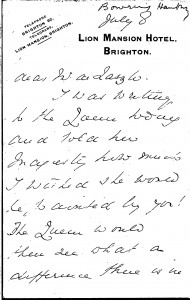 July 8
TELEPHONE
BRIGHTON
LION MANSION, BRIGHTON.
LION MANSION HOTEL.
BRIGHTON.
dear Mr de Laszlo.
I was writing
to the Queen today
and told her
Majesty how much
I wished she would
be painted by you!
The Queen would
then see what a
difference there is in